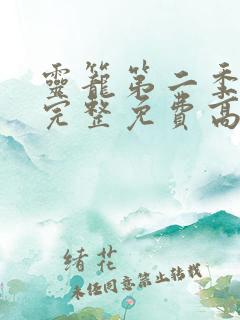 靈籠第二季
完整免費高
緒花
未经同意禁止转载